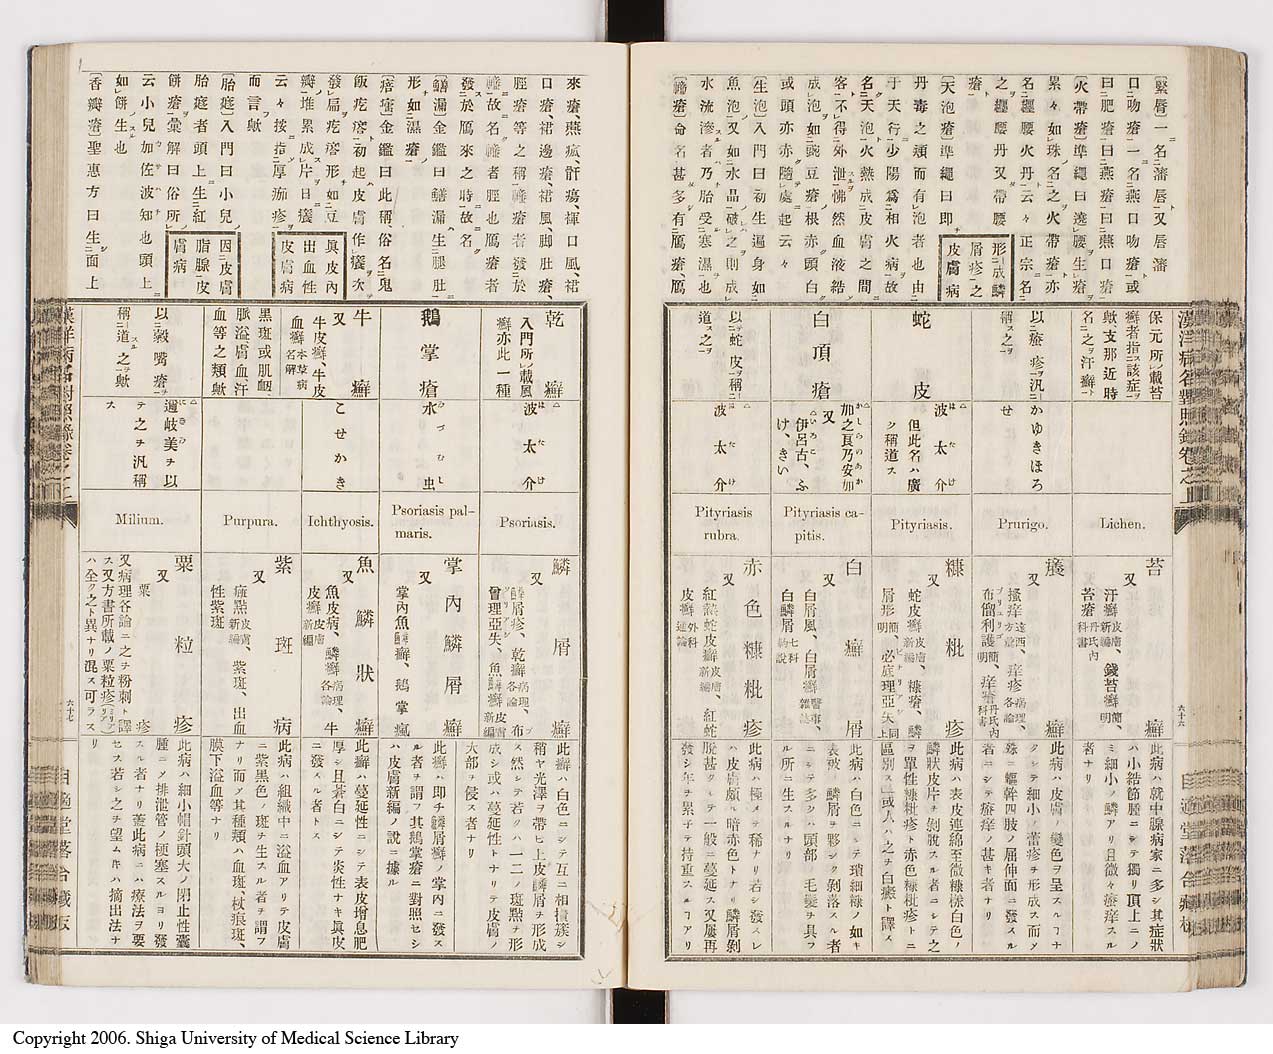 〔緊脣〕一名瀋脣又唇瀋
口吻瘡一名燕口吻瘡或
曰肥瘡曰燕瘡曰燕口瘡
〔火帶瘡〕準繩曰遶腰生瘡
累々如珠名之火帶瘡亦
名纒腰火丹云々正宗名
之纒腰丹又帶腰
瘡
形成鱗
屑疹之
皮膚病
〔天泡瘡〕準繩曰即
丹毒之類而有泡者也由
于天行少陽爲相火病故
名天泡火熱成皮膚之間
客不得外泄怫然血液結
成泡如豌豆瘡根赤頭白
或頭亦赤隨處起云々
〔生泡〕入門曰初生遍身如
魚泡又如水晶破之則成
水流滲者乃胎受寒濕也
〔𤹠瘡〕命名甚多有鴈瘡、鴈
保元所載苔
癬者指該症
歟、支那近時
名之汗癬
以癢疹汎
稱之
蛇皮
白頂瘡
以蛇皮稱
道之
かゆきほろ
せ
波太介
但此名ハ廣
ク稱道ス
加之良乃安加
又
伊呂古、ふ
け、きい
波太介
Lichen.
Prurigo.
Pityriasis.
Pityriasis ca-
pitis.
Pityriasis
rubra.
苔癬
又
汗癬皮膚新編、錢苔癬簡明
苔瘡丹氏內科書
癢疹
又
搔痒遠西方彙、痒疹病理各論
布僂利護簡明、痒瘡丹氏內科書
糠枇疹
又
蛇皮癬皮膚新編、糠瘡、鱗
屑形簡明、必庭理亞矢同上
白癬屑
又
白屑風、白屑癬醫事雜誌
白鱗屑七科約說
赤色糠枇疹
又
紅熱蛇皮癬皮膚新編、紅蛇
皮癬外科通論
此病ハ就中腺病家ニ多シ其症狀
ハ小結節腫ニシテ獨リ頂上ニノ
ミ細小ノ鱗アリ且微々癢痒スル
者ナリ
此病ハ皮膚ノ變色ヲ呈スルヿナ
クシテ細小ノ蕾疹ヲ形成シ而メ
殊ニ軀幹四肢ノ屈伸面ニ發スル
者ニシテ癢痒ノ甚キ者ナリ
此病ハ表皮連綿至微糠樣白色ノ
鱗狀皮片ヲ剝脫スル者ニシテ之
ヲ單性糠枇疹ト赤色糠枇疹トニ
區別ス」或人ハ之ヲ白癜ト譯ス
此病ハ白色ニシテ瑣細糠ノ如キ
表皴ノ鱗屑ヲ夥シク剝落スル者
ニシテ多クハ頭部ノ毛髮ヲ具フ
ル所ニ生スルナリ
此病ハ極メテ稀ナリ若シ發スレ
ハ皮膚頗ル暗赤色トナリ鱗屑剝
脫甚タシテ一般ニ蔓延ス又屢再
發シ年ヲ累子テ持重スルヿアリ
漢洋病名對照錄卷之上
六十六
來瘡、燕瘋、骬瘍、褌口風、裙
口瘡、裙邊瘡、裙風、脚肚瘡、
脛瘡等之稱𤹠瘡者發於
𤹠故名𤹠者脛也鴈瘡者
發於鴈來之時故名
〔鱔漏〕金鑑曰鱔漏生腿肚
形如濕瘡
〔瘖㿔〕金鑑曰此稱俗名鬼
飯疙瘩初起皮膚作癢次
發扁疙瘩形如豆
瓣堆累成片日癢
云々按指厚痂疹
而言歟
眞皮內
出血性
皮膚病
〔胎㾴〕入門曰小兒
胎㾴者頭上生紅
餅瘡彙解曰俗所
云小兒加佐波知也頭上
如餅生也
因皮膚
脂腺皮
膚病
〔香瓣瘡〕聖惠方曰生面上
乾癬
入門所載風
癬亦此一種
鵝掌瘡
牛癬
又
牛皮癬、牛皮
血癬本草病名解
黑斑或肌衂
脈溢膚血汗
血等之類歟
以穀嘴瘡
稱道之歟
波太介
水虫
こせかき
邇岐美ヲ以
テ之ヲ汎稱
ス
Psoriasis.
Psoriasis pal-
maris.
Ichthyosis.
Purpura.
Milium.
鱗屑癬
又
鱗屑疹、乾癬病理各論、布
曾理亞失、魚鱗癬皮膚新編
掌內鱗屑癬
又
掌內魚鱗癬、鵝掌瘋
魚鱗狀癬
又
魚皮病、鱗癬病理各論、牛
皮癬皮膚新編
紫斑病
又
痺㸃皮膚新編、紫斑、出血
性紫斑
粟粒疹
又
粟
又病理各論ニ之ヲ粉刺ト譯
ス又方書所載ノ粟粒疹
ハ全ク之ト異ナリ混ス可ラス
此癬ハ白色ニシテ互ニ相積簇シ
稍ヤ光澤ヲ帶ヒ上皮鱗屑ヲ形成
ス然シテ若クハ一二ノ斑㸃ヲ形
成シ或ハ蔓延性トナリテ皮膚ノ
大部ヲ侵ス者ナリ
此癬ハ即チ鱗屑癬ノ掌內ニ發ス
ル者ヲ謂フ其鵝掌瘡ニ對照セシ
ハ皮膚新編ノ說ニ據ル
此癬ハ蔓延性ニシテ表皮增息肥
厚シ且蒼白ニシテ炎性ナキ眞皮
ニ發スル者トス
此病ハ組織中ニ溢血アリテ皮膚
ニ紫黑色ノ斑ヲ生スル者ヲ謂フ
ナリ而メ其種類ハ血斑、杖痕斑、
膜下溢血等ナリ
此病ハ細小帽針頭大ノ閉止性囊
腫ニメ排泄管ノ梗塞スルヨリ發
スル者ナリ蓋此病ニハ療法ヲ要
セス若シ之ヲ望ムキハ摘出法ナ
リ
六十七
Copyright 2006. Shiga University of Medical Science Library